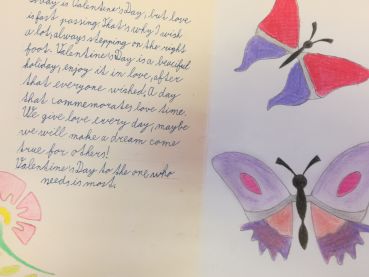 Today is Valentine's Day, but love
is fast passing. That's why I wish
a lot, always stepping on the right
foot. Valentine's Day is a beautiful
holiday, enjoy it in love, after
that everyone wished. A day
that commemorates love time.
We give love every day, maybe
we will make a dream come
true for others!
Valentine's Day to the one who
needs is most.